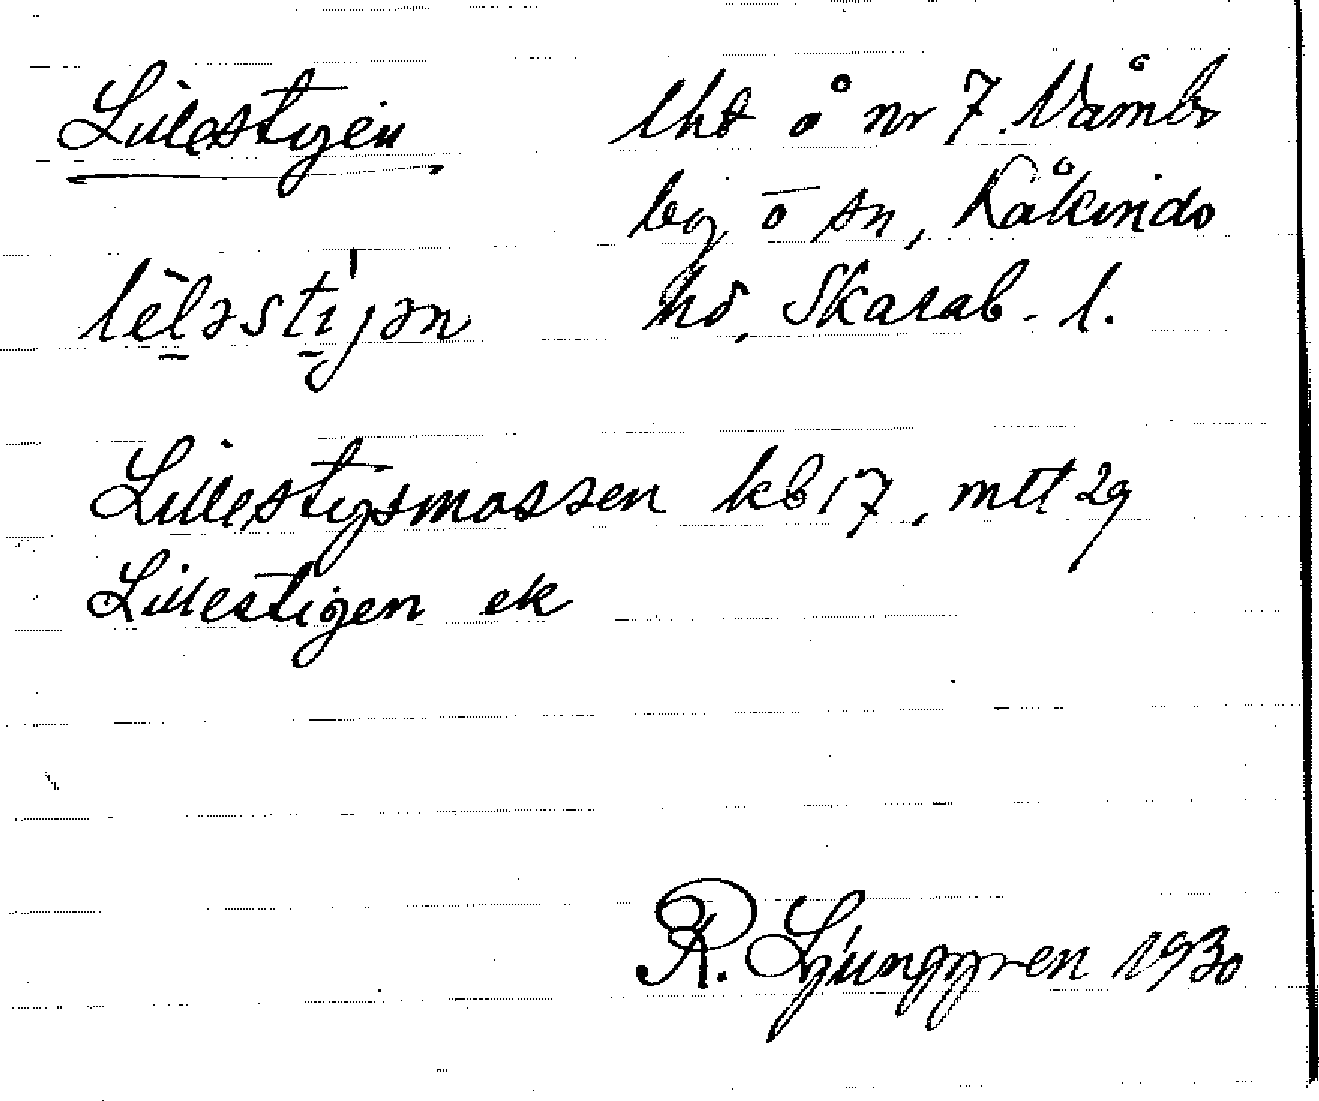 Lillestigen
lht å nr 7 Våmbs
by o sn, Kåkinds
hd, Skarab. l.
lelǝstijǝn
Lillestigsmossen kb 17, mtt 29
Lillestigen ek
R. Ljunggren 1930